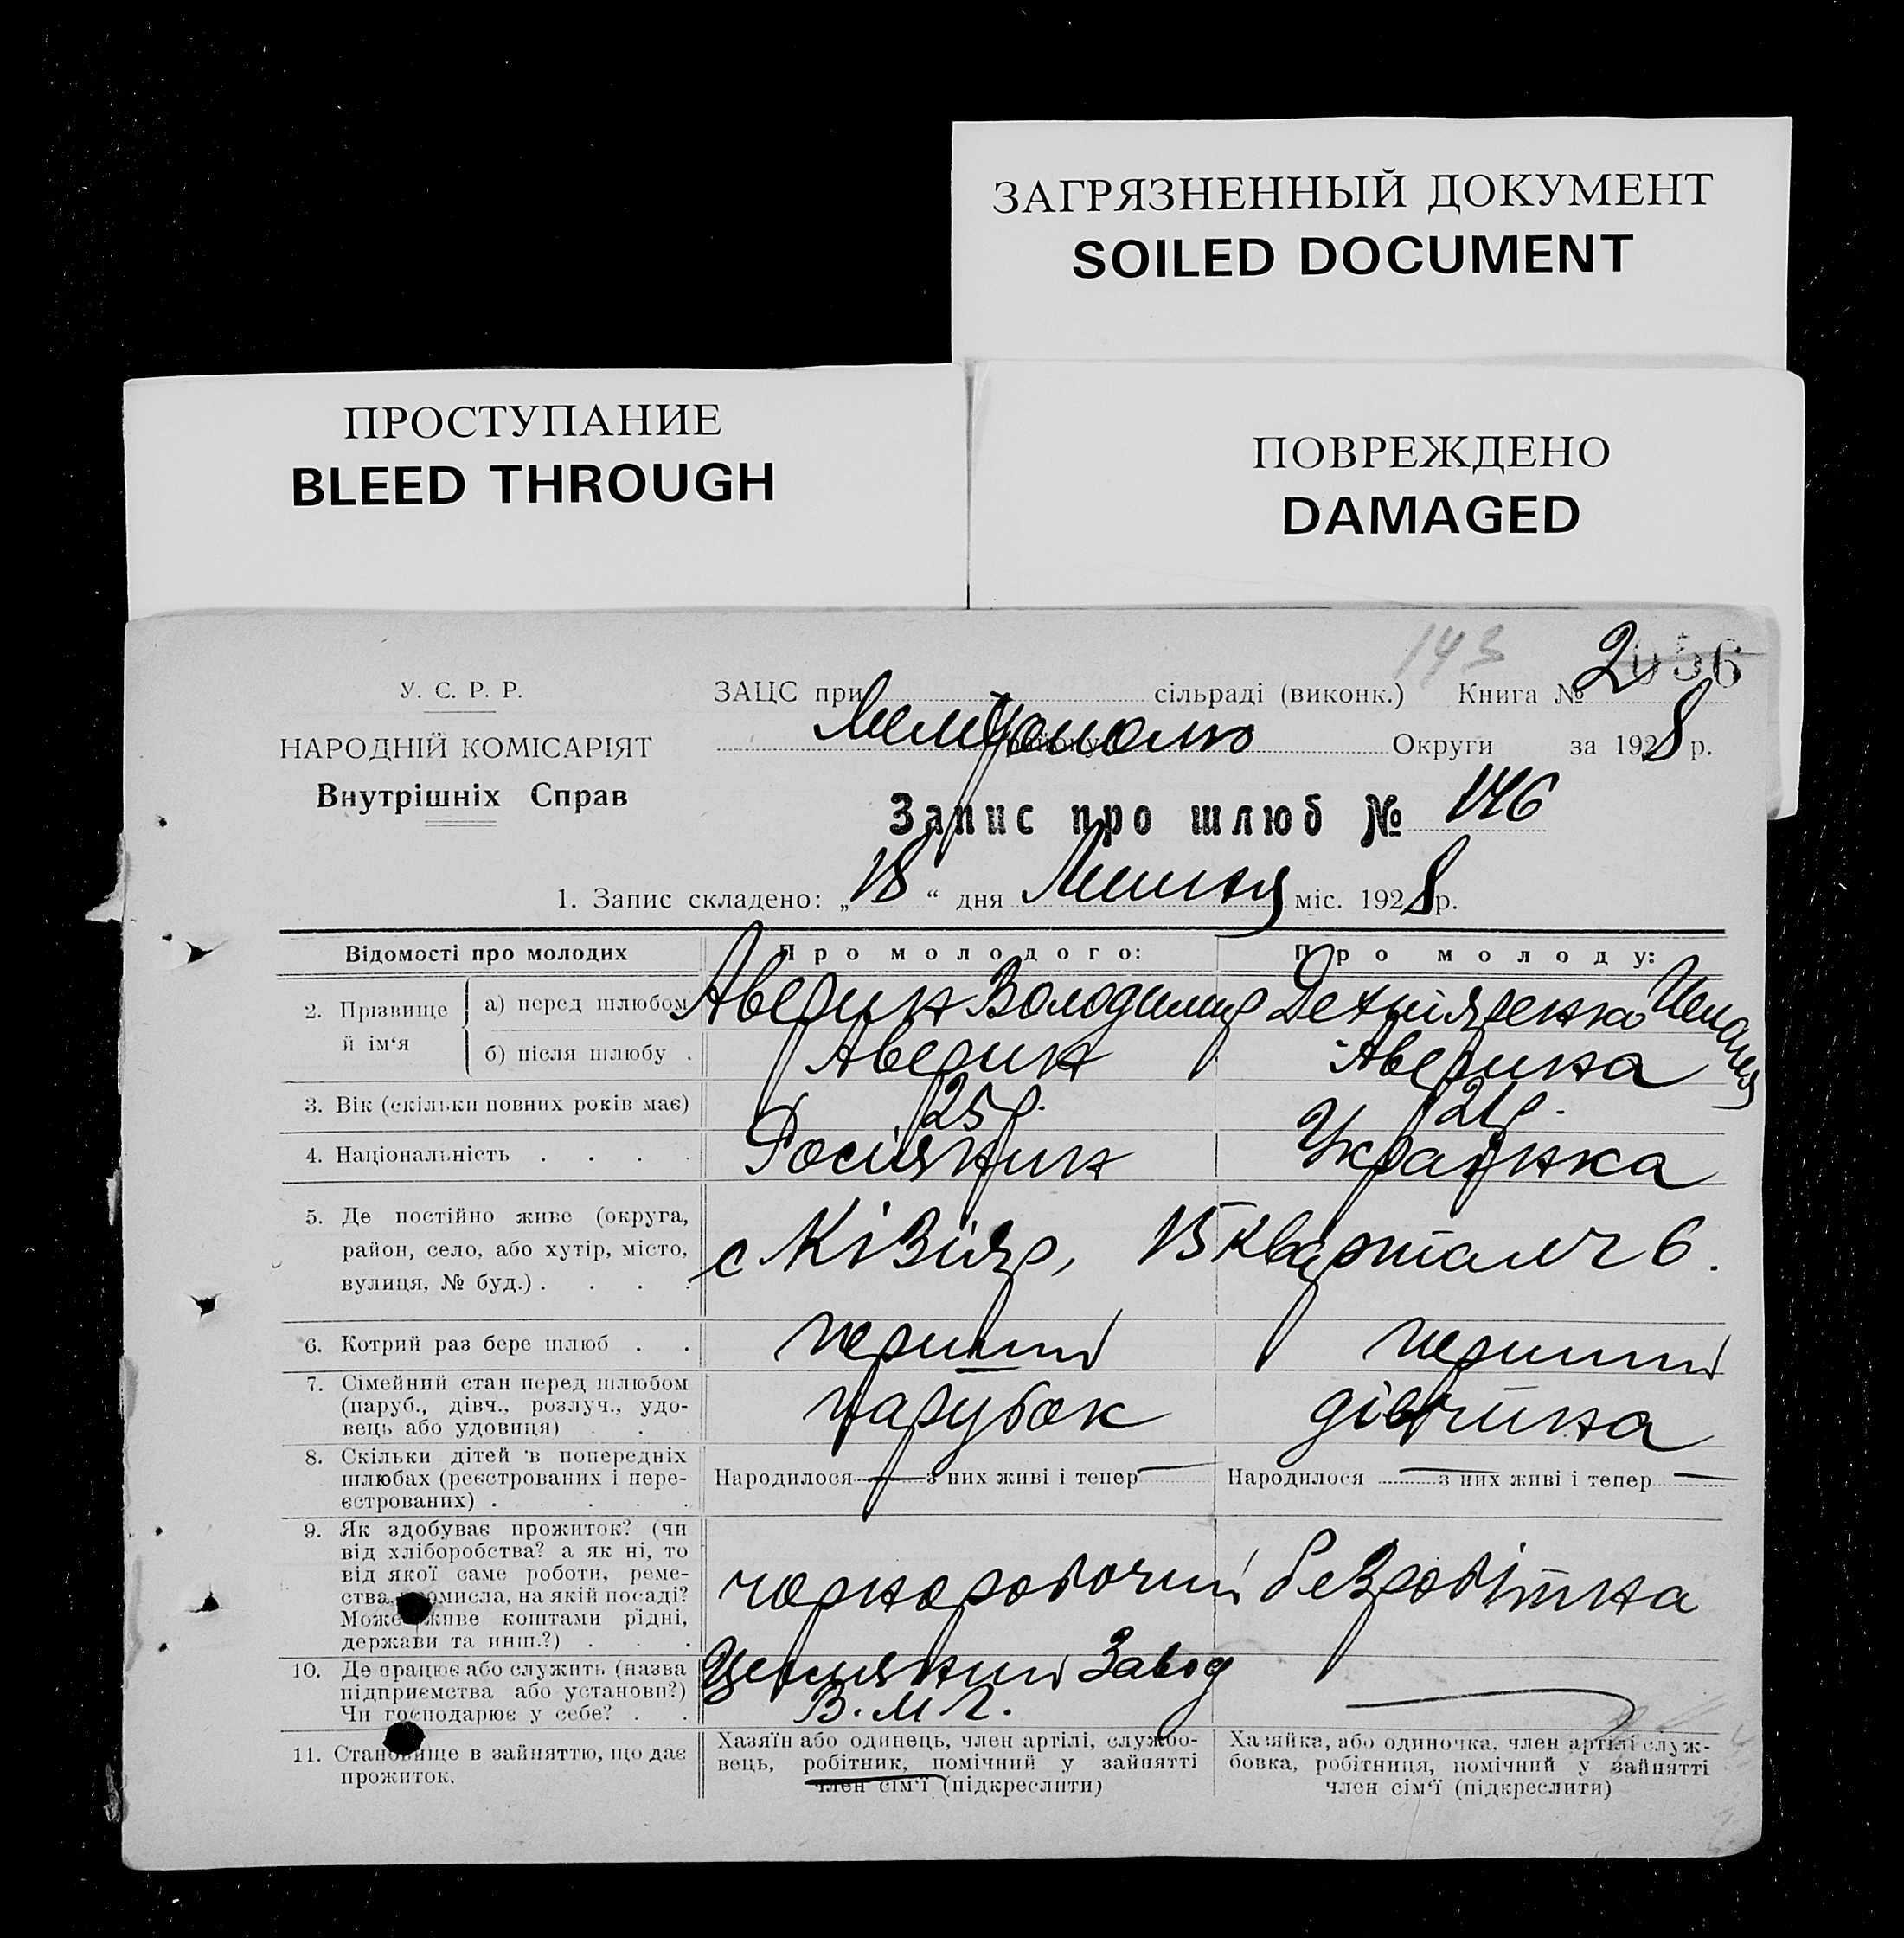 ЗАГРЯЗНЕННЫЙ ДОКУМЕНТ
SOILED DOCUMENT
ПРОСТУПАНИЕ
BLEED THROUGH
ПОВРЕЖДЕНО
DAMAGED
143
2056
У. С. Р. Р.
НАРОДНІЙ КОМІСАРІЯТ
Внутрішніх Справ
ЗАЦС при сільраді (виконк.) Книга № 2
району Округи за 1928 р.
Запис про шлюб № 146
1. Запис складено: „18“ дня Липня міс. 1928 р.
Відомості про молодих Про молодого: Про молоду:
2. Прізвище й ім‘я
а) перед шлюбом Аверин Володимир
б) після шлюбу . Аверин Аверина
3. Вік (скільки повних років має) 25 р. 21 р.
4. Національність . . . . Росіянин Українка
5. Де постійно живе (округа,
район, село, або хутір, місто,
вулиця, № буд.) . . . .
с Кізіяр, 15 квартал ч 6.
6. Котрий раз бере шлюб . . перший перший
7. Сімейний стан перед шлюбом
(паруб., дівч., розлуч., удо-
вець або удовиця) . . .
парубок дівчина
8. Скільки дітей в попередніх
шлюбах (реєстрованих і нере-
єстрованих) . . . . .
Народилося — з них живі і тепер — Народилося — з них живі і тепер —
9. Як здобуває прожиток? (чи
від хліборобства? а як ні, то
від якої саме роботи, реме-
ства, промисла, на якій посаді?
Може живе коштами рідні,
держави та инш.?) . . .
чорноробочий безробітна
10. Де працює або служить (назва
підприємства або установи?)
Чи господарює у себе? . .
Завод
В. М. Г.
11. Становище в зайняттю, що дає
прожиток.
Хазяїн або одинець, член артілі, службо-
вець, робітник, помічний у зайнятті
член сім‘ї (підкреслити)
Хазяйка, або одиночка, член артілі служ-
бовка, робітниця, помічний у зайнятті
член сім‘ї (підкреслити)